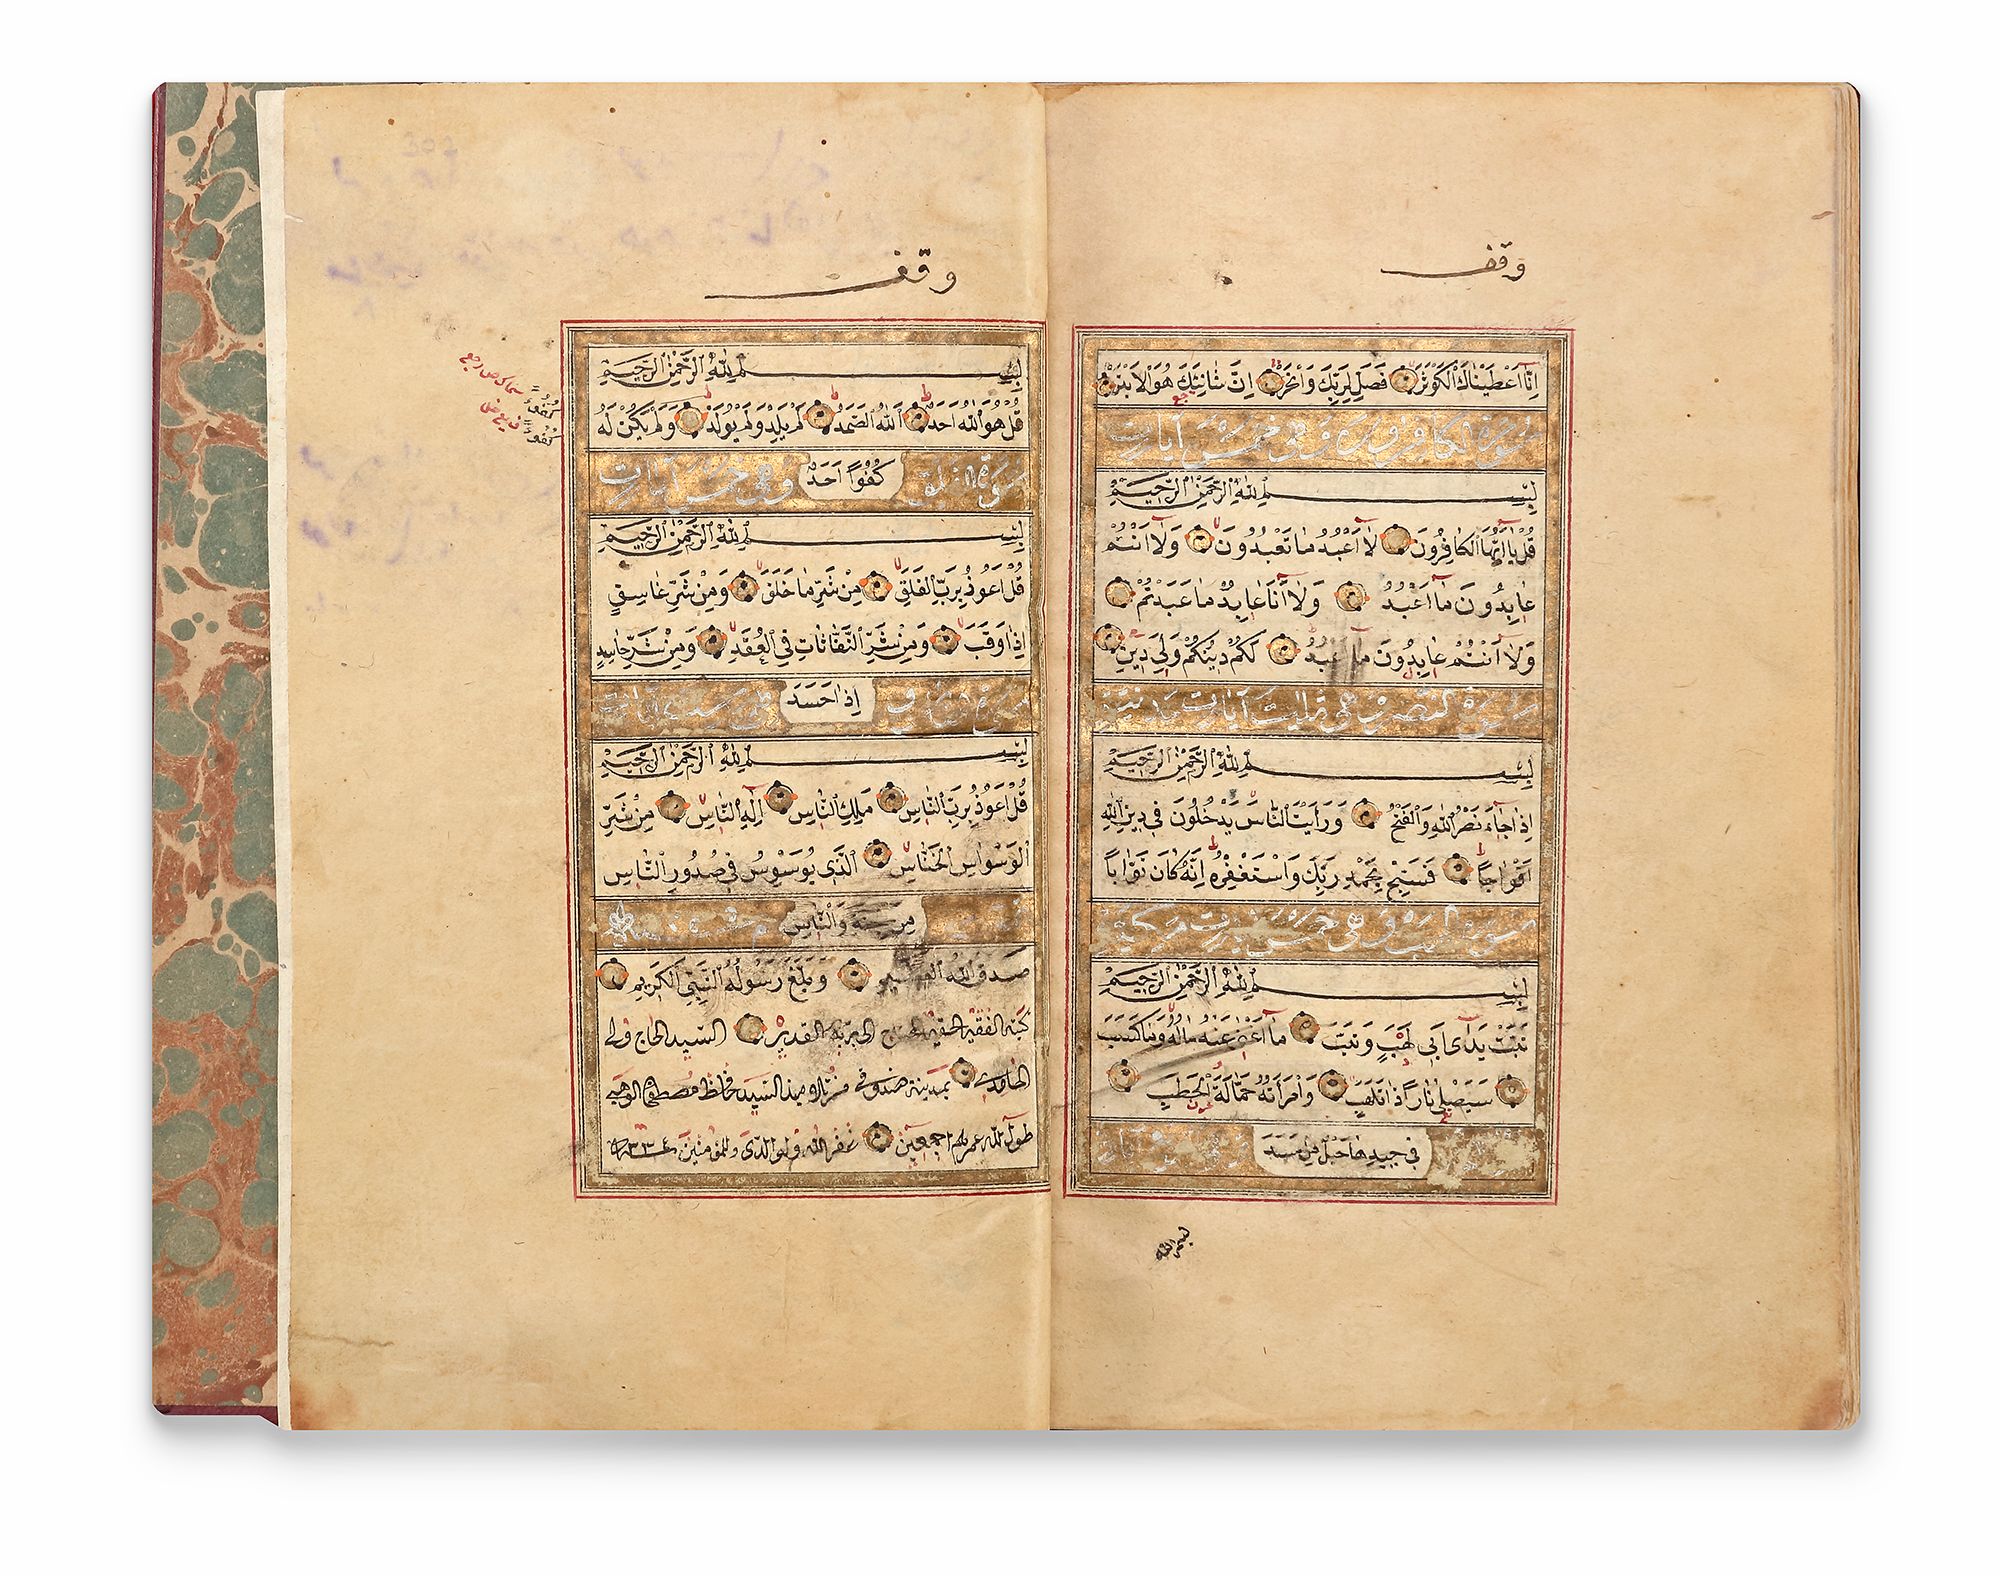 وقف
إِنَّا أَعْطَيْنَاكَ الْكَوْثَرَ فَصَلِّ لِرَبِّكَ وَانْحَرْ إِنَّ شَانِئَكَ هُوَ الْابْتَرُ
سورة الكافرون وهي خمس آيات
بِسْمِ اللهِ الرَّحْمٰنِ الرَّحِيمِ
قُلْ يَا أَيُّهَا الْكَافِرُونَ لَا أَعْبُدُ مَا تَعْبُدُونَ وَلَا أَنْتُمْ
عَابِدُونَ مَا أَعْبُدُ وَلَا أَنَا عَابِدٌ مَا عَبَدْتُمْ
وَلَا أَنْتُمْ عَابِدُونَ مَا أَعْبُدُ لَكُمْ دِينُكُمْ وَلِيَ دِينِ
سورة النصر وهي ثلث آيات مدنية
بِسْمِ اللهِ الرَّحْمٰنِ الرَّحِيمِ
إِذَا جَاءَ نَصْرُ اللهِ وَالْفَتْحُ وَرَأَيْتَ النَّاسَ يَدْخُلُونَ فِي دِينِ اللهِ
أَفْوَاجًا فَسَبِّحْ بِحَمْدِ رَبِّكَ وَاسْتَغْفِرْهُ إِنَّهُ كَانَ تَوَّابًا
سورة تبت وهي خمس آيات مكية
بِسْمِ اللهِ الرَّحْمٰنِ الرَّحِيمِ
تَبَّتْ يَدَا أَبِي لَهَبٍ وَتَبَّ مَا أَغْنَى عَنْهُ مَالُهُ وَمَا كَسَبَ
سَيَصْلَى نَارًا ذَاتَ لَهَبٍ وَامْرَأَتُهُ حَمَّالَةَ الْحَطَبِ
فِي جِيدِهَا حَبْلٌ مِنْ مَسَدٍ
بسم الله
وقف
بِسْمِ اللهِ الرَّحْمٰنِ الرَّحِيمِ
قُلْ هُوَ اللهُ أَحَدٌ اَللهُ الصَّمَدُ لَمْ يَلِدْ وَلَمْ يُولَدْ وَلَمْ يَكُنْ لَهُ
كُفُوًا أَحَدٌ
وهي خمس آيات
بِسْمِ اللهِ الرَّحْمٰنِ الرَّحِيمِ
قُلْ أَعُوذُ بِرَبِّ الْفَلَقِ مِنْ شَرِّ مَا خَلَقَ وَمِنْ شَرِّ غَاسِقٍ
إِذَا وَقَبَ وَمِنْ شَرِّ النَّفَّاثَاتِ فِي الْعُقَدِ وَمِنْ شَرِّ حَاسِدٍ
إِذَا حَسَدَ
بِسْمِ اللهِ الرَّحْمٰنِ الرَّحِيمِ
قُلْ أَعُوذُ بِرَبِّ النَّاسِ مَلِكِ النَّاسِ إِلٰهِ النَّاسِ مِنْ شَرِّ
الْوَسْوَاسِ الْخَنَّاسِ الَّذِي يُوَسْوِسُ فِي صُدُورِ النَّاسِ
مِنَ الْجِنَّةِ وَالنَّاسِ
صَدَقَ اللهُ الْعَظِيمُ وَبَلَّغَ رَسُولُهُ النَّبِيُّ الْكَرِيمُ
كتبه الفقير الحقير المحتاج إلى ربه القدير السيد الحاج ولي
الحامدي بمدينة من تلاميذ السيد حافظ مصطفى الوهبي
طول الله عمرهم اجمعين غفر الله ولوالدي وللمؤمنين